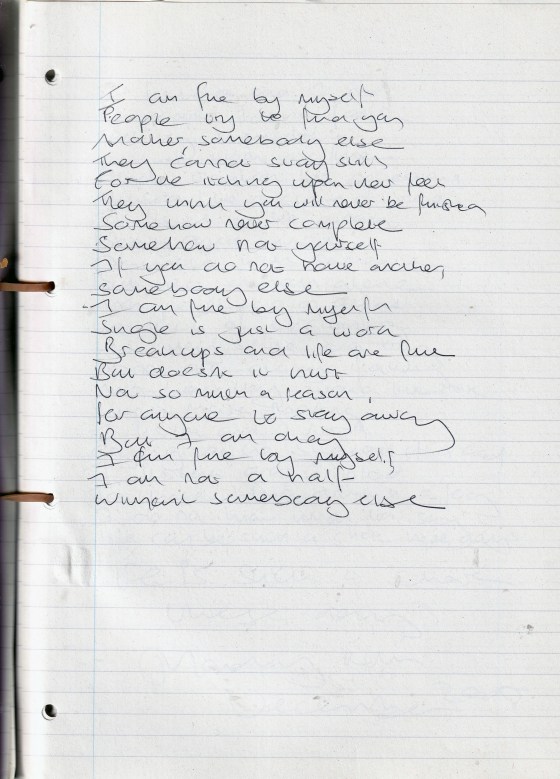 I am fine by myself
People try to find you
Another, somebody else
They cannot stay still
For the itching upon their feet
They think you will never be finished
Somehow never complete
Somehow not yourself
If you do not have another,
somebody else
I am fine by myself
Single is just a word
Breakups and life are fine
But doesn't it hurt
Not so much a reason,
for anyone to stay away
But I am okay
I am fine by myself,
I am not a half
Without somebody else